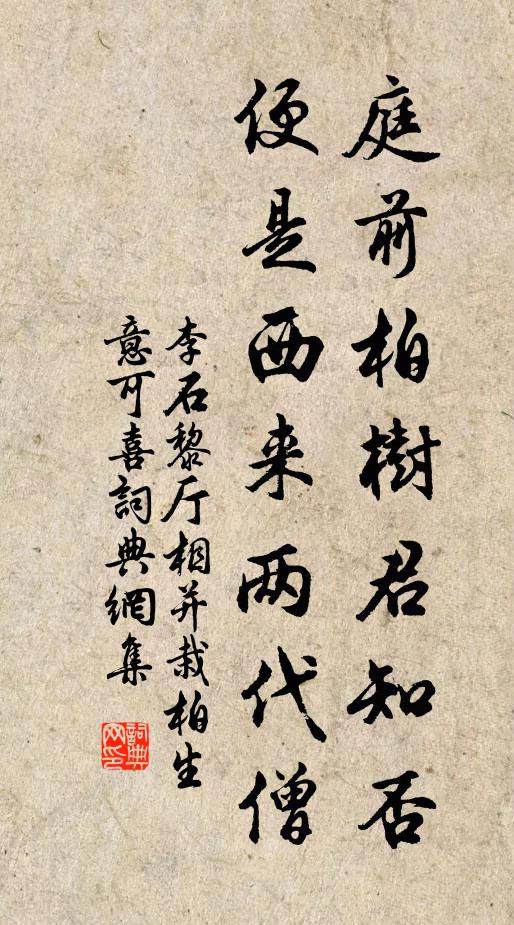 庭前柏樹君知否
便是西来两代僧
李石黎厅相并栽柏生
意可喜詞典網集
詞典
网印